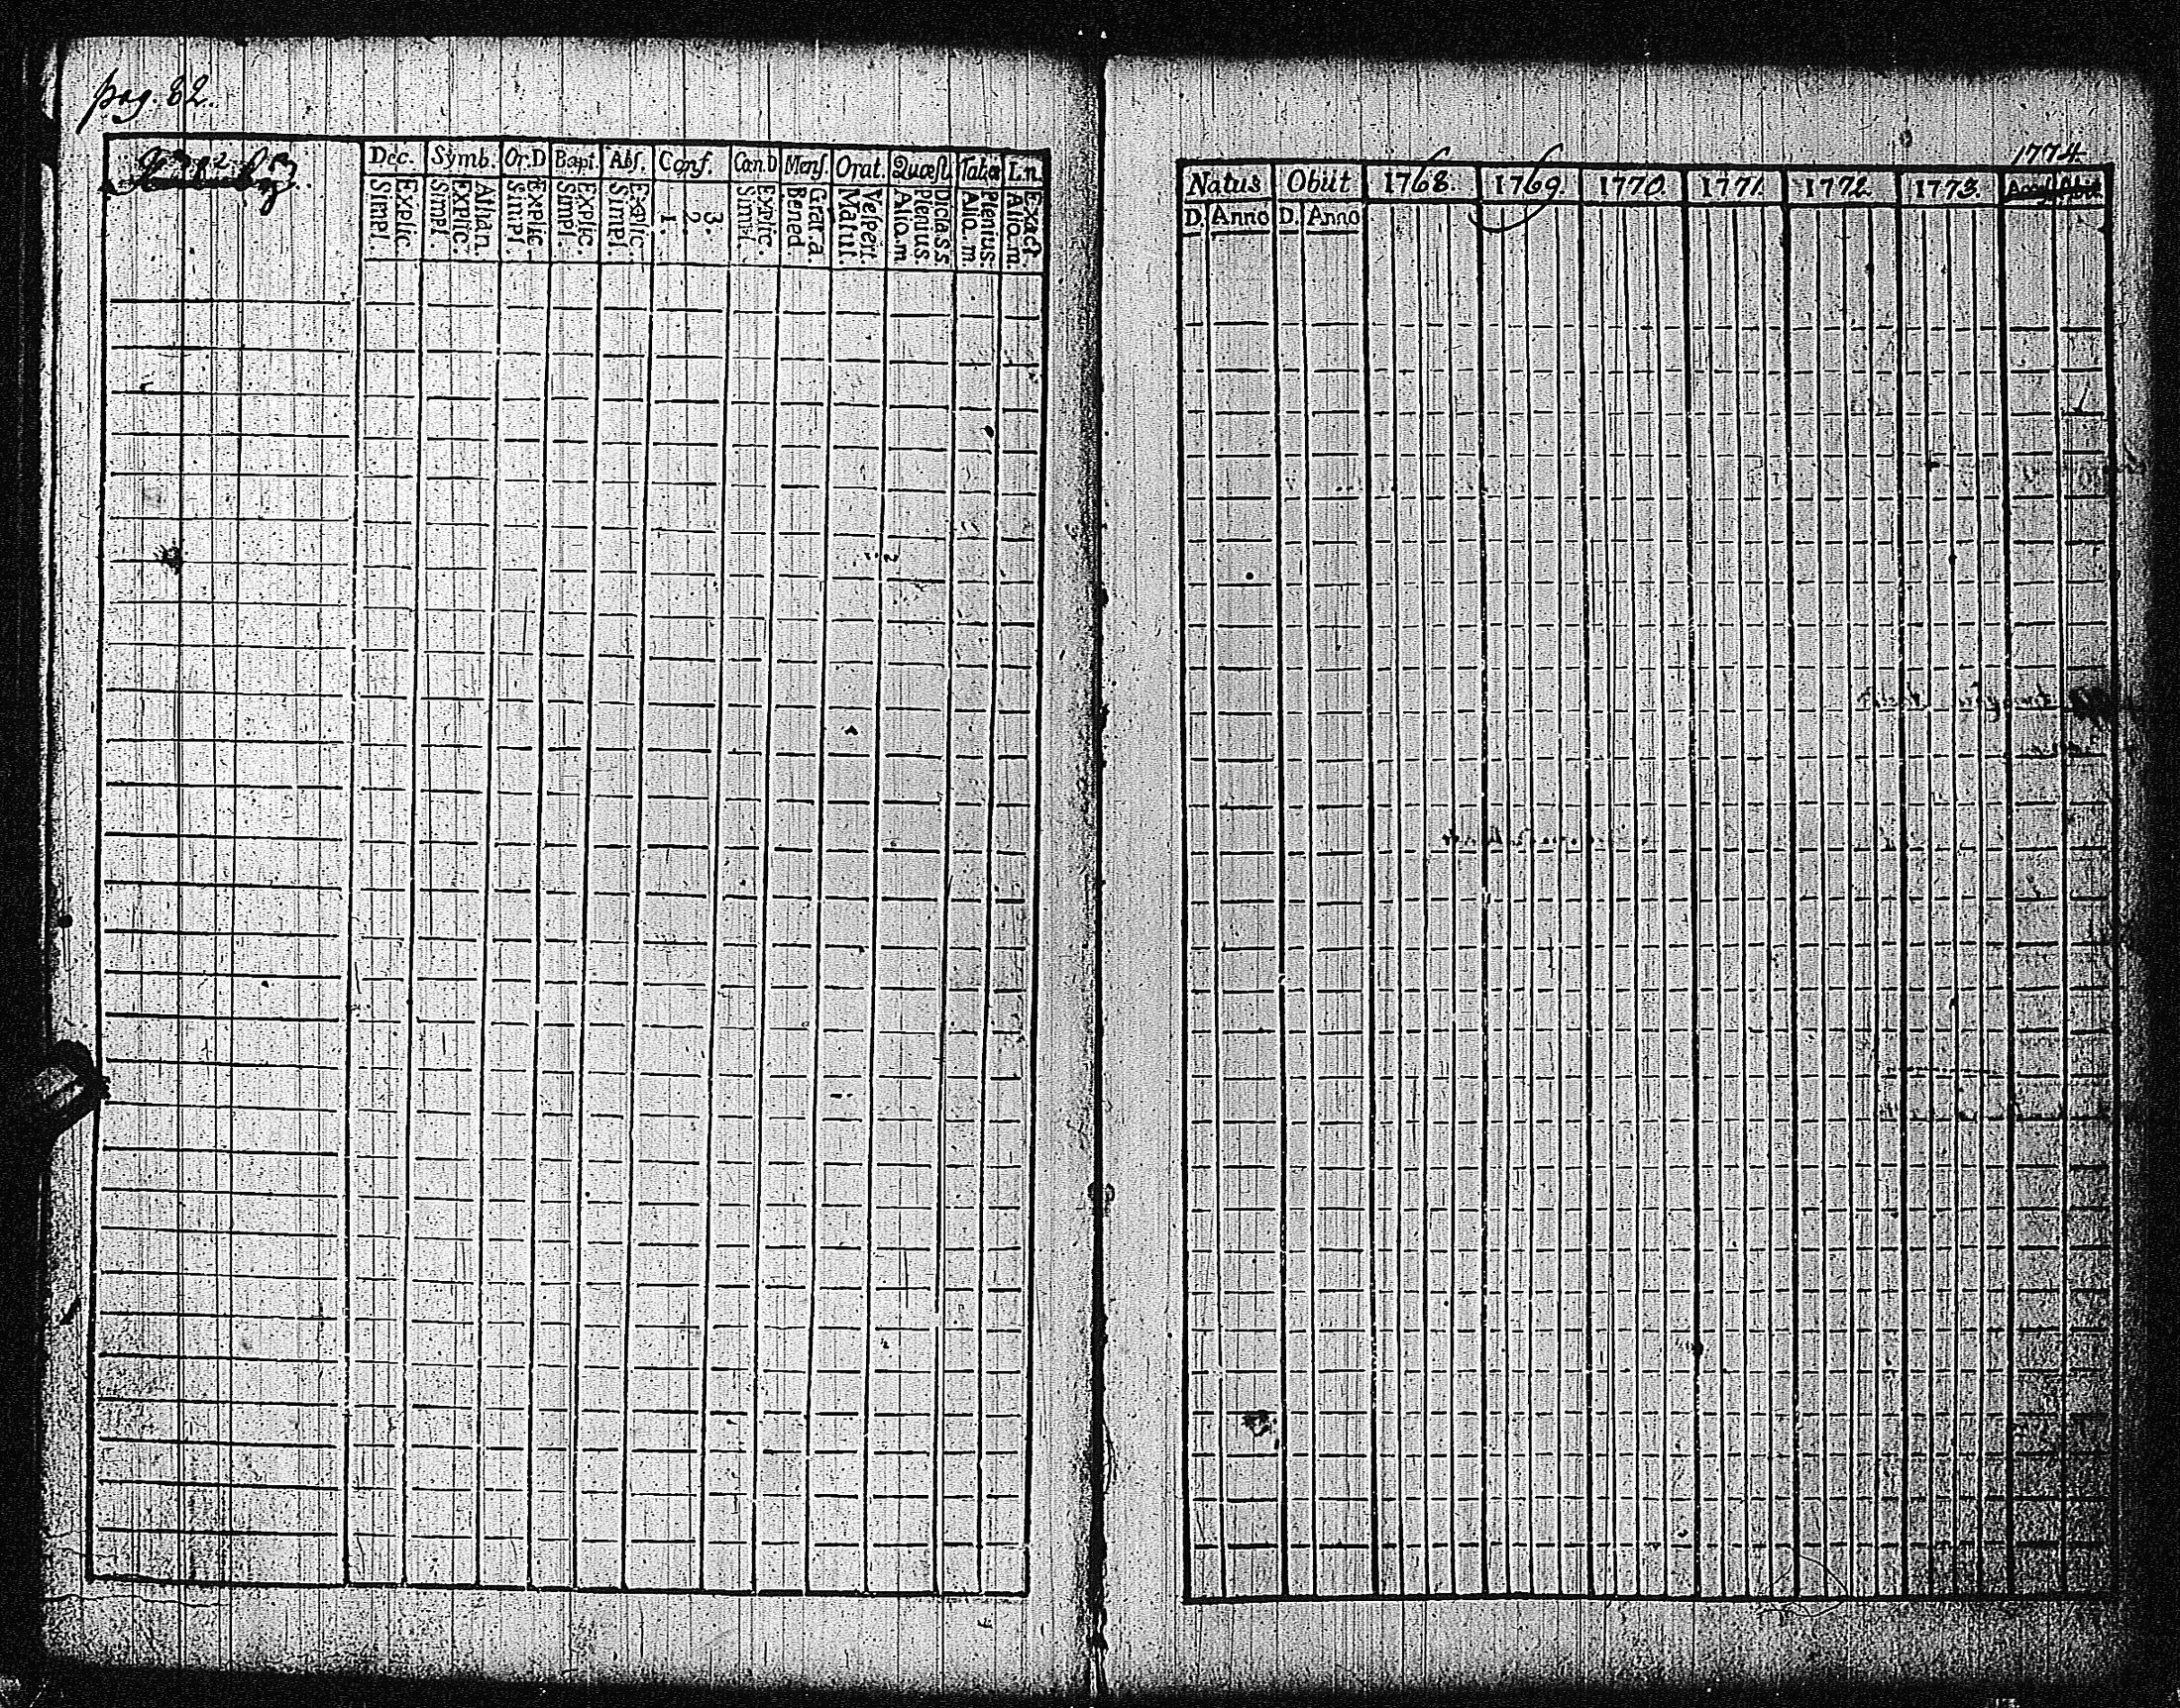 pag. 82.
Dec. Symb. Or.D Bapt. Abſ. Conf. Cœn.D Menſ. Orat. Quæſt. Tab.œ Ln.
Explic. Simpl. Athan. Explic. Simpl. Explic. Simpl. Explic. Simpl. Explic. Simpl. 3. 2. 1. Explic. Simpl. Grat.a. Bened. Veſpert. Matut. Dicta S.S. Plenius Aliq.m Plenius Aliq.m Exact. Aliq.m
1774.
Natus Obiit 1768. 1769. 1770. 1771. 1772. 1773. Acceſſ. Abiit
D. Anno D. Anno